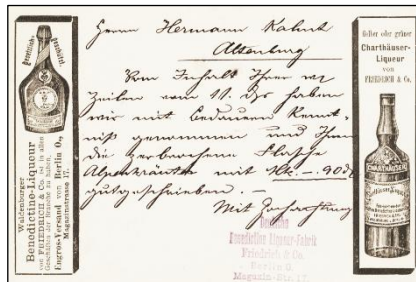 Gesetzlich geschützt.
Waldenburger
Benedictino-Liqueur
von FRIEDRICH & Co ist in allen
Geschäften der Branche zu haben.
Engros-Versand von Berlin O.,
Magazinstrasse 17.
Herrn Hermann Kahnt
Altenburg
Vom Inhalt Ihrer w
Zeilen vom 11. ds haben
wir mit Bedauern Kennt-
niß genommen und Ihnen
die zerbrochene Flasche
Alpenkräuter mit Mk. -. 90
gutgeschrieben. -
Mit Hochachtung
Deutsche
Benedictine Liqueur-Fabrik
Friedrich & Co.
Berlin O.
Magazin-Str. 17.
Gelber oder grüner
Charthäuser-
Liqueur
von
FRIEDRICH & Co.
CHARTHÄUSER